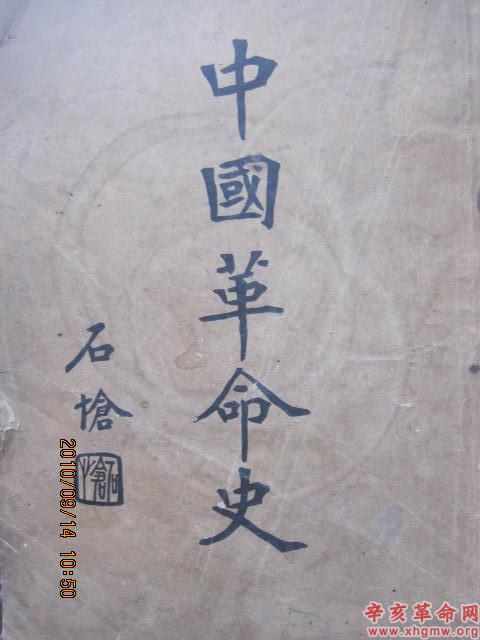 中國革命史
石愴
2010/09/14 10:50
辛亥革命网
www.xhgmw.org